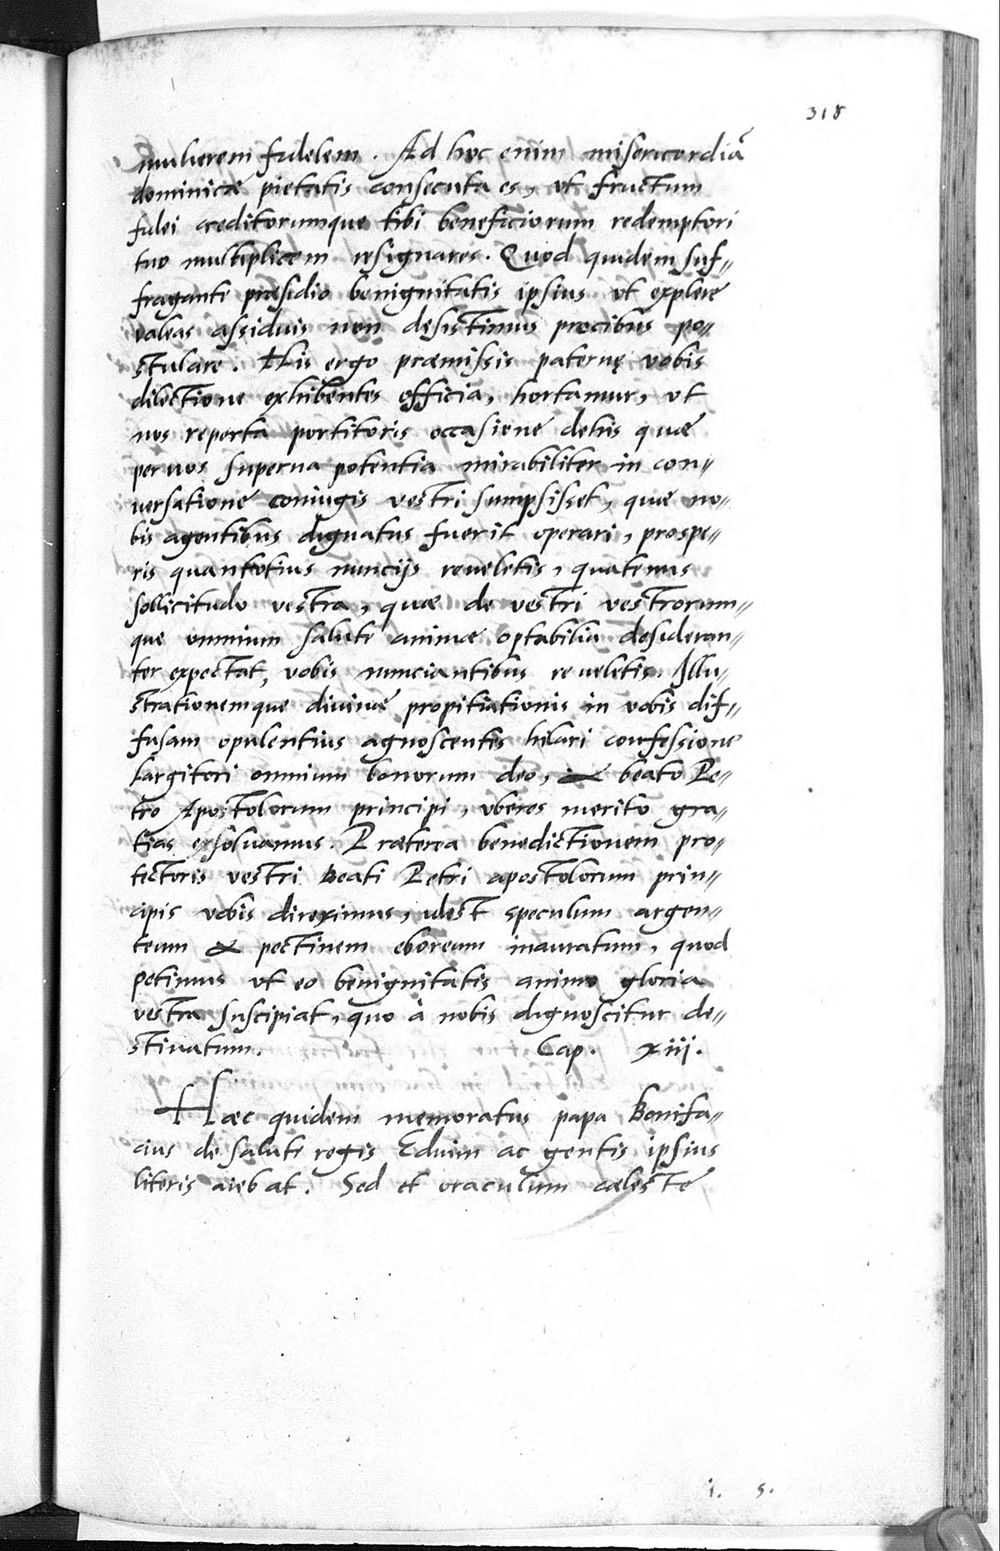 318
mulierem fidelem. Ad hoc enim misericordiã
dominicæ pietatis consecuta es, vt fructum
fidei creditorumque tibi beneficiorum redemptori
tuo multiplicem resignares. Quod quidem suf„
fraganti præsidio benignitatis ipsius vt explere
valeas assiduis non desistimus præcibus po„
stulare. His ergo præmissis paternę vobis
dilectione exhibentes officia, hortamur, vt
nos reperta portitoris occasione dehis quæ
per uos superna potentia mirabiliter in con„
uersatione coniugis vestri sumpsisset, quæ no„
bis agentibus dignatus fuerit operari, prospe„
ris quantotius nuncijs reueletis, quatenus
sollicitudo vestra, quæ de vestri vestrorum„
que omnium saluti animæ optabilia desideran„
ter expectat, vobis nunciantibus reueletis. Illu„
strationemque diuinæ propitiationis in vobis dif„
fusam opulentius agnoscentis hilari confessione
Largitori omnium bonorum deo, & beato Pe„
tro Apostolorum principi, vberes merito gra„
tias exsoluamus. Præterea benedictionem pro„
tectoris vestri Beati Petri apostolorum prin„
cipis vobis direximus, idest speculum argen„
teum & pectinem eboreum inauratum, quod
petimus vt eo benignitatis animo gloria
vestra suscipiat, quo à nobis dignoscitur de„
stinatum. Cap. xiij.
Hæc quidem memoratus papa Bonifa„
cius de saluti regis Eduini ac gentis ipsius
literis aiebat. Sed et oraculum cæleste
i. 5.